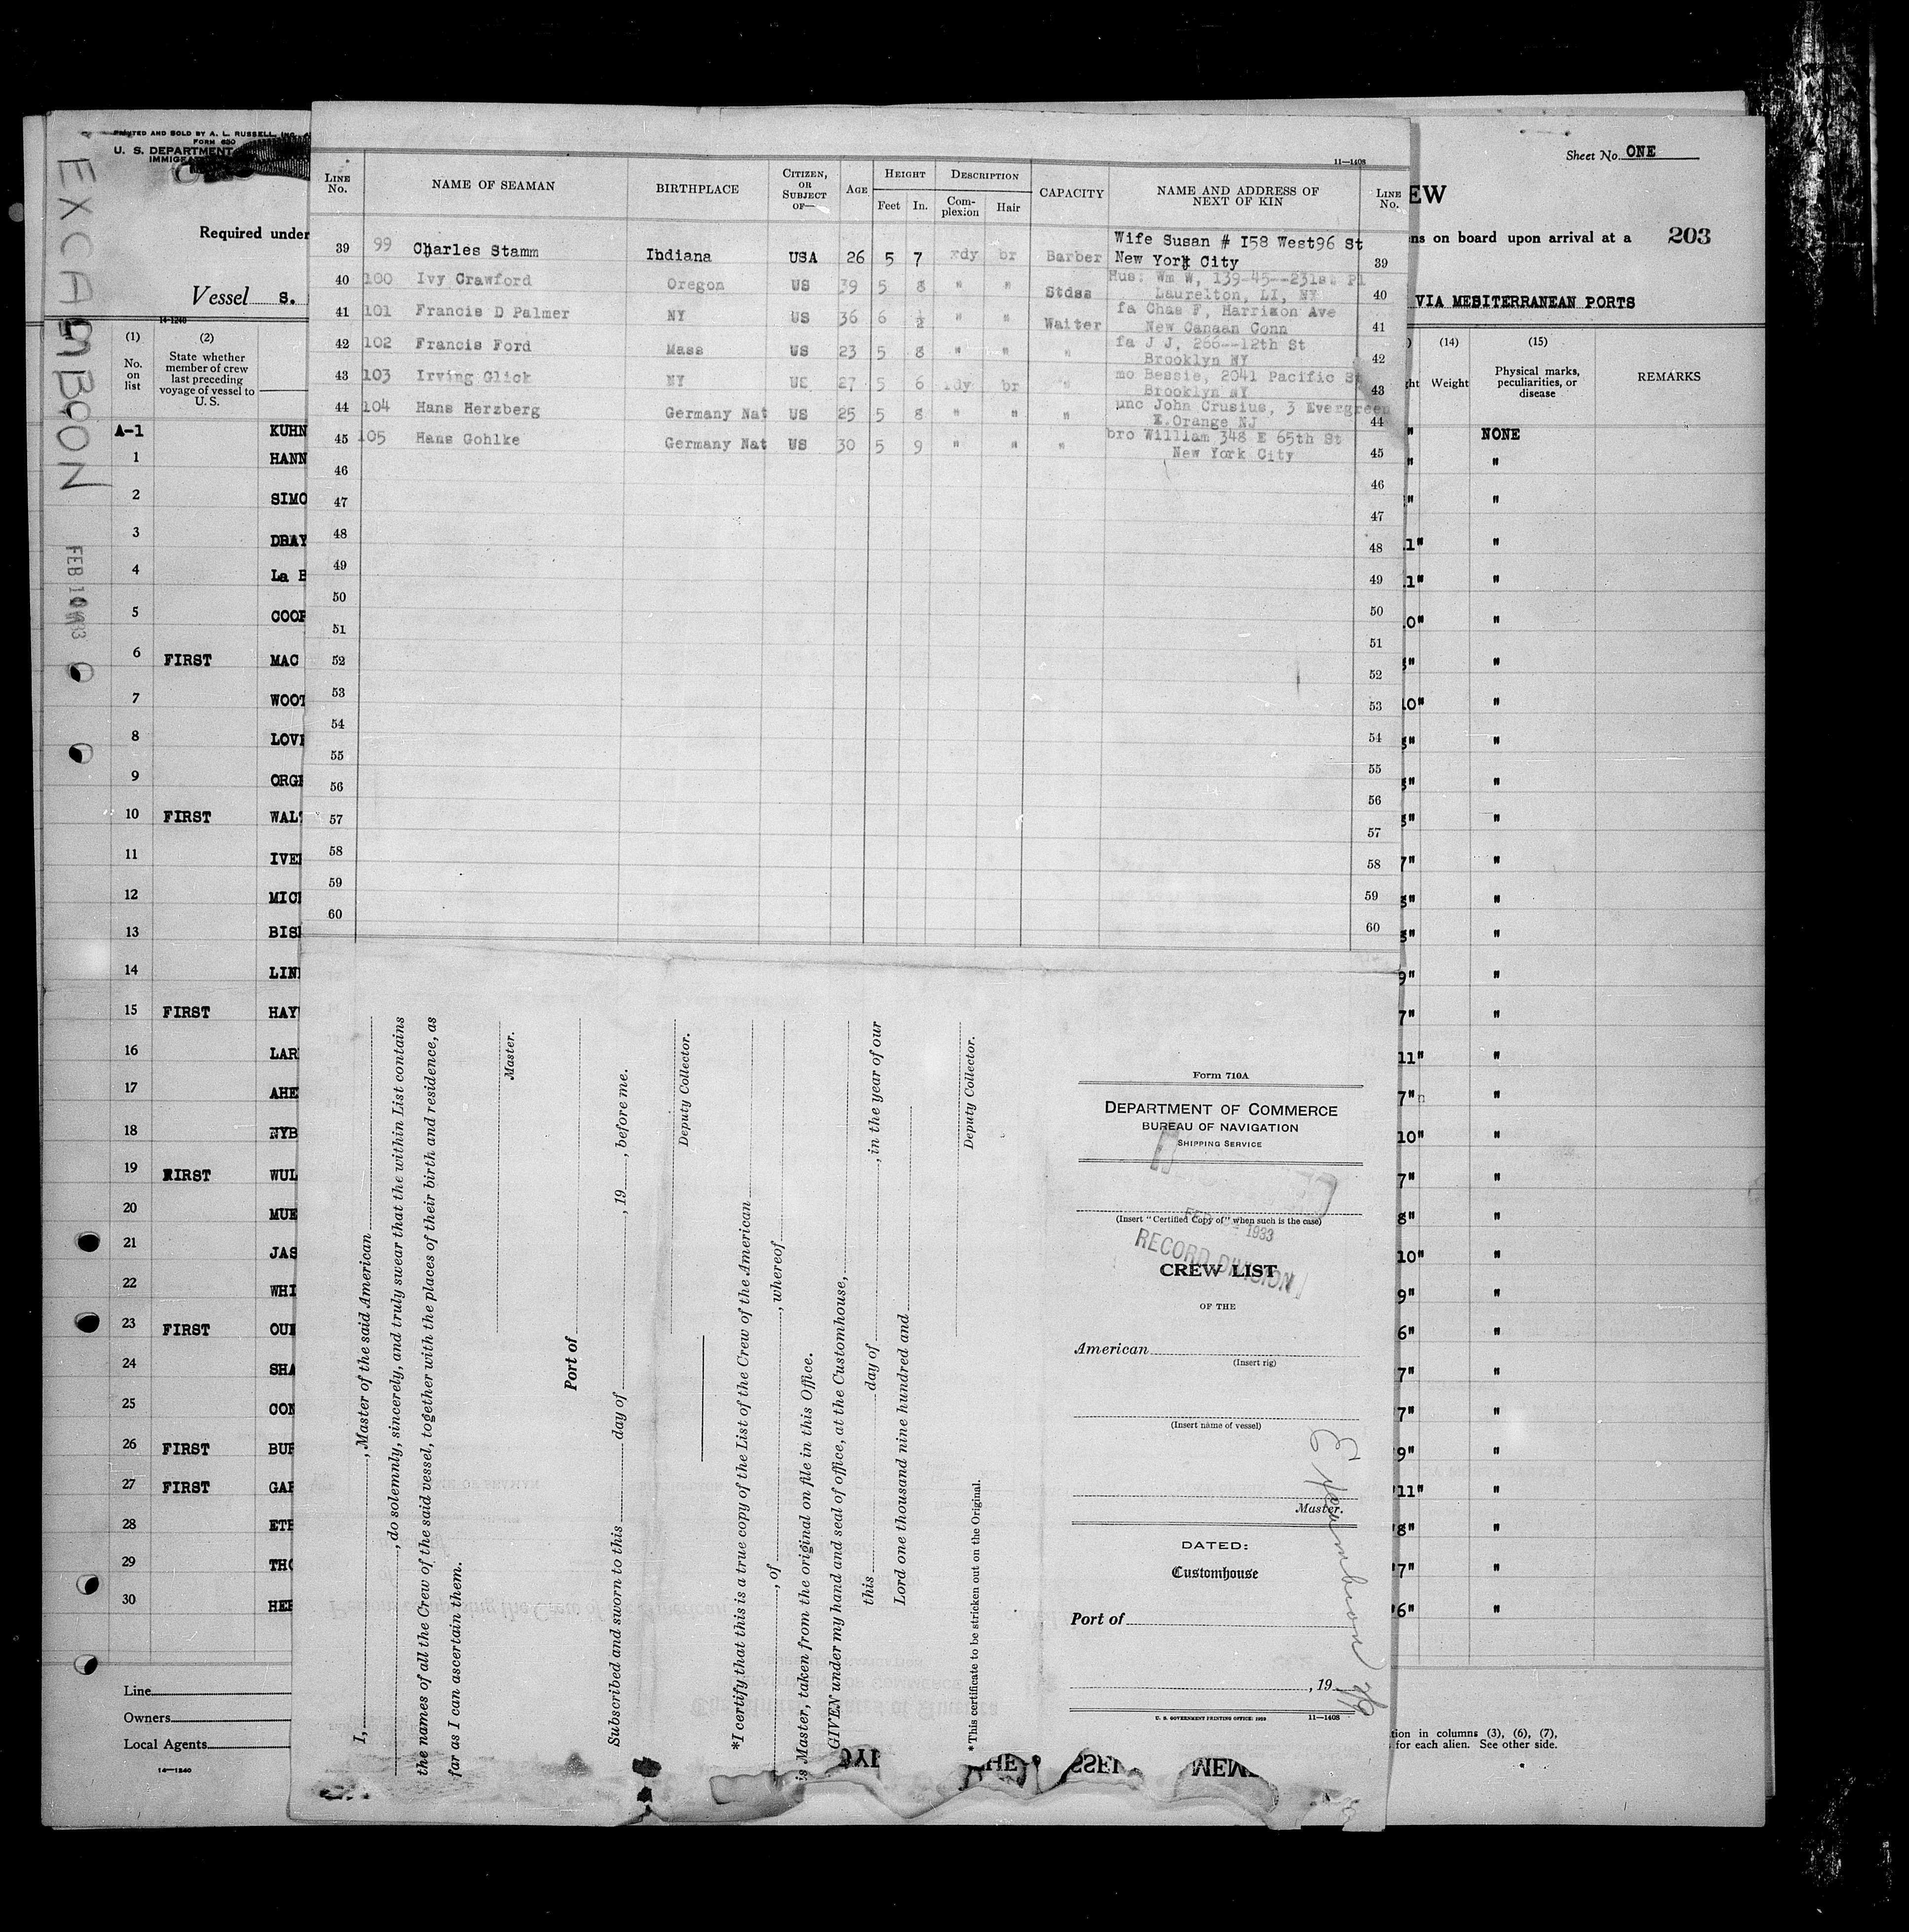 PRINTED AND SOLD BY A. L. RUSSELL, INC.
FORM 680
U. S. DEPARTMENT
EXCAMBION
FEB 1933
Required under
Vessel S.
14-1240
(1) (2)
No. on list
State whether
member of crew
last preceding
voyage of vessel to
U. S.
A-1 KUHN
1 HANN
2 SIMO
3 DRAY
4 La B
5 COOP
6 FIRST MAC
7 WOOT
8 LOVE
9 ORGE
10 FIRST WALT
11 IVE
12 MIC
13 BIS
14 LIN
15 FIRST HAY
16 LAR
17 AHE
18 NYB
19 FIRST WUL
20 MUE
21 JAS
22 WHI
23 FIRST OUI
24 SHA
25 CON
26 FIRST BUR
27 FIRST GAR
28 ETH
29 THO
30 HER
Line
Owners
Local Agents
14—1240
11—1408
LINE No. NAME OF SEAMAN BIRTHPLACE CITIZEN, OR SUBJECT OF— AGE HEIGHT Feet In. DESCRIPTION Complexion Hair CAPACITY NAME AND ADDRESS OF NEXT OF KIN LINE No.
39 99 Charles Stamm Indiana USA 26 5 7 rdy br Barber Wife Susan # I58 West96 St
New York City 39
40 100 Ivy Crawford Oregon US 39 5 8 " " Stdss Hus: Wm W, 139-45--231st Pl
Laurelton, LI, NY 40
41 101 Francis D Palmer NY US 36 6 ½ " " Waiter fa Chas F, Harrison Ave
New Canaan Conn 41
42 102 Francis Ford Mass US 23 5 8 " " " fa J J, 266--12th St
Brooklyn NY 42
43 103 Irving Glick NY US 27 5 6 rdy br " mo Bessie, 2041 Pacific St
Brooklyn NY 43
44 104 Hans Herzberg Germany Nat US 25 5 8 " " " unc John Crusius, 3 Evergreen
E.Orange NJ 44
45 105 Hans Gohlke Germany Nat US 30 5 9 " " " bro William 348 E 65th St
New York City 45
46 46
47 47
48 48
49 49
50 50
51 51
52 52
53 53
54 54
55 55
56 56
57 57
58 58
59 59
60 60
I, , Master of the said American
, do solemnly, sincerely, and truly swear that the within List contains
the names of all the Crew of the said vessel, together with the places of their birth and residence, as
far as I can ascertain them.
Master.
Port of
Subscribed and sworn to this day of , 19 , before me.
Deputy Collector.
*I certify that this is a true copy of the List of the Crew of the American
, of , whereof
is Master, taken from the original on file in this Office.
GIVEN under my hand and seal of office, at the Customhouse,
this day of , in the year of our
Lord one thousand nine hundred and
Deputy Collector.
*This certificate to be stricken out on the Original.
Form 710A
DEPARTMENT OF COMMERCE
BUREAU OF NAVIGATION
SHIPPING SERVICE
(Insert "Certified Copy of" when such is the case)
FEB 1933
RECORD DIVISION
CREW LIST
OF THE
American
(Insert rig)
(Insert name of vessel)
Master.
Excambion
DATED:
Customhouse
Port of
, 19
U. S. GOVERNMENT PRINTING OFFICE: 1929 11—1408
Sheet No. ONE
EW
ens on board upon arrival at a 203
VIA MEDITERRANEAN PORTS
(14) (15)
Weight
Physical marks,
peculiarities, or
disease
REMARKS
NONE
tion in columns (3), (6), (7),
for each alien. See other side.